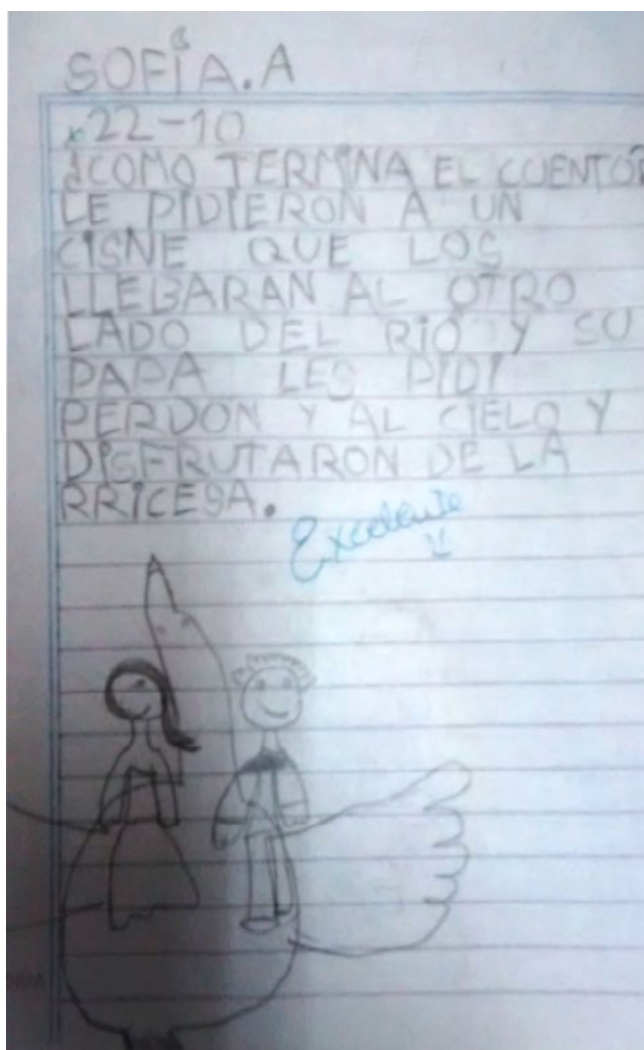 SOFÍA.A
x22-10
¿COMO TERMINA EL CUENTO?
LE PIDIERON A UN
CISNE QUE LOS
LLEBARAN AL OTRO
LADO DEL RIO Y SU
PAPA LES PIDI
PERDON Y AL CIELO Y
DISFRUTARON DE LA
RRICESA.
Excelente